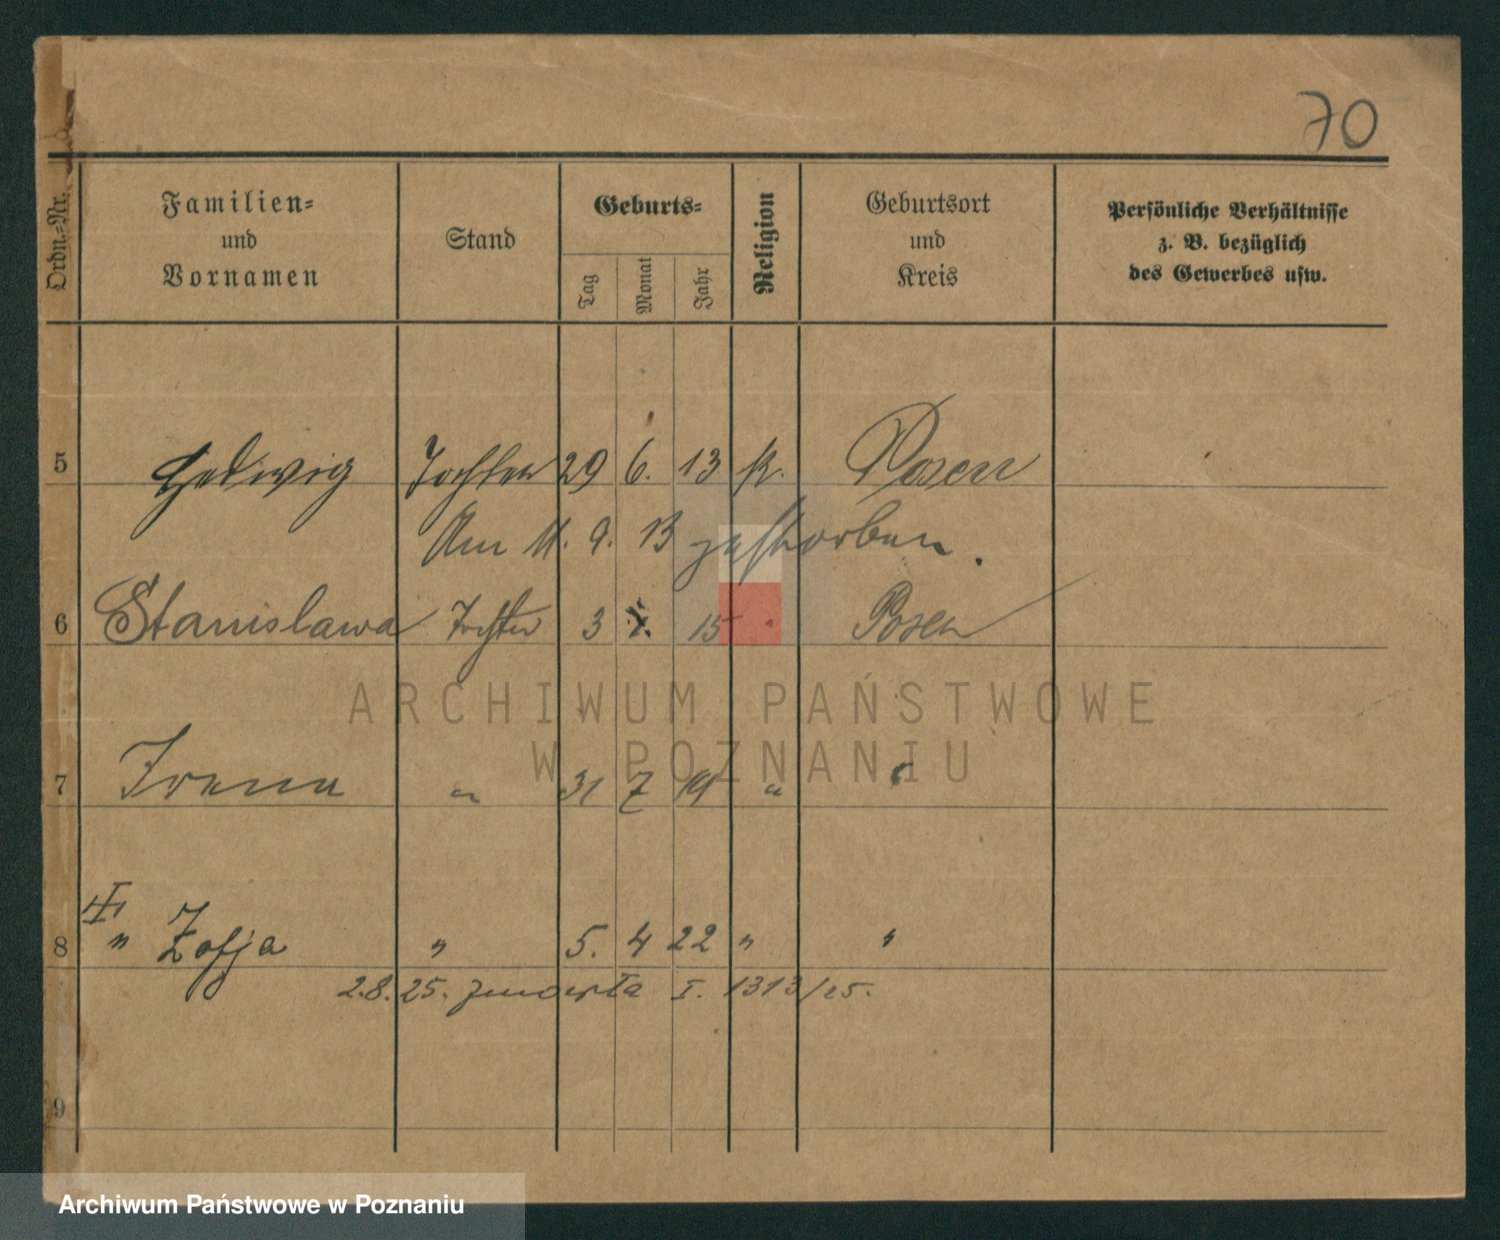 70
Ordn.-Nr.
Familien-
und
Vornamen
Stand
Geburts-
Tag
Monat
Jahr
Religion
Geburtsort
und
Kreis
Persönliche Verhältnisse
z. B. bezüglich
des Gewerbes usw.
5 Hedwig Tochter 29 6. 13 k. Posen
Am 11. 9. 13 gestorben.
6 Stanislawa Tochter 3 15 " Posen
ARCHIWUM PAŃSTWOWE
W POZNANIU
7 Irena " 31 7 19 " "
8 " Zofja " 5. 4 22 " "
2.8.25. zmarła I. 1313/25.
9
Archiwum Państwowe w Poznaniu